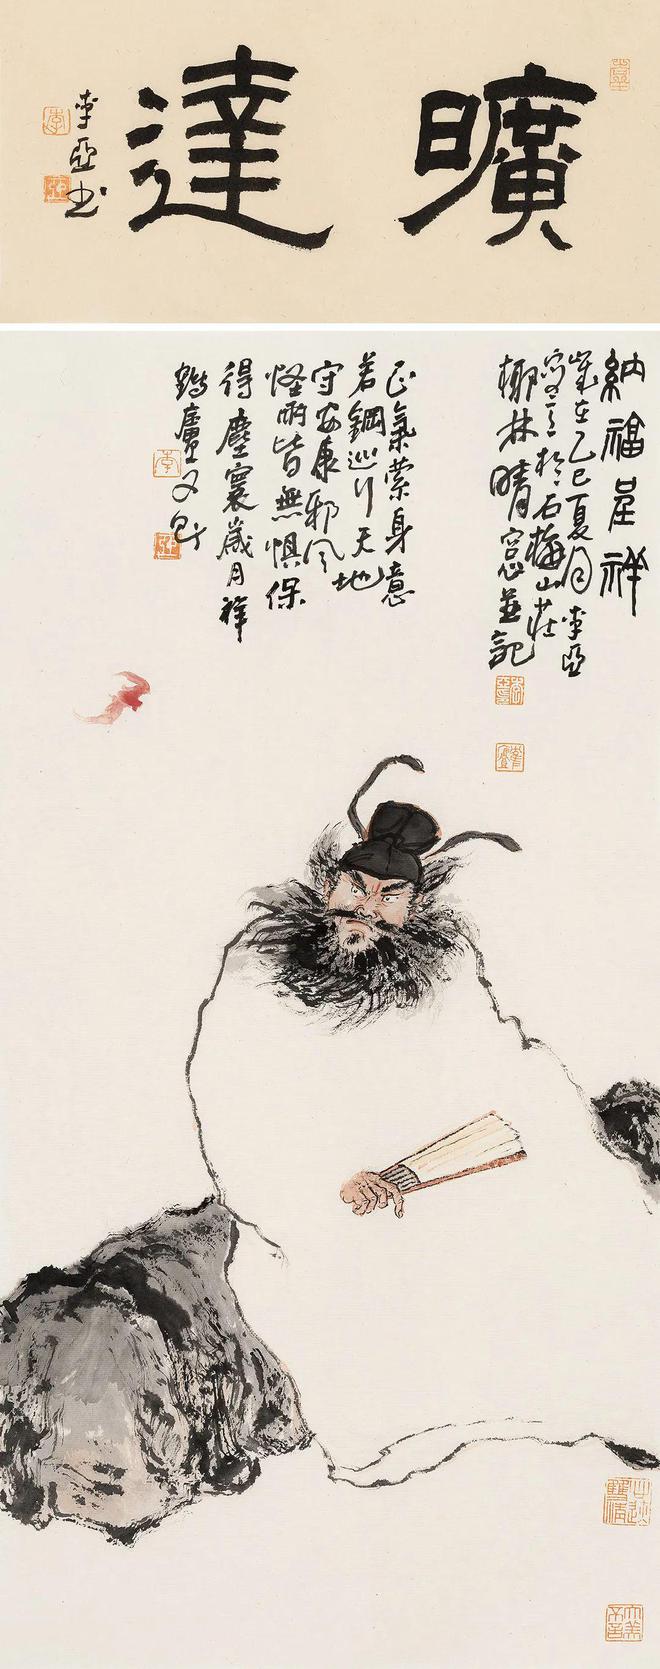 曠達
李亞书
李
亞
納福呈祥
歲在乙巳夏月李亞
寫於石梅山莊
椰林晴窓並記
正氣縈身意
若鋼巡行天地
守安康邪风
怪雨皆無懼保
得塵寰歲月祥
鶴廬又題
李
亞